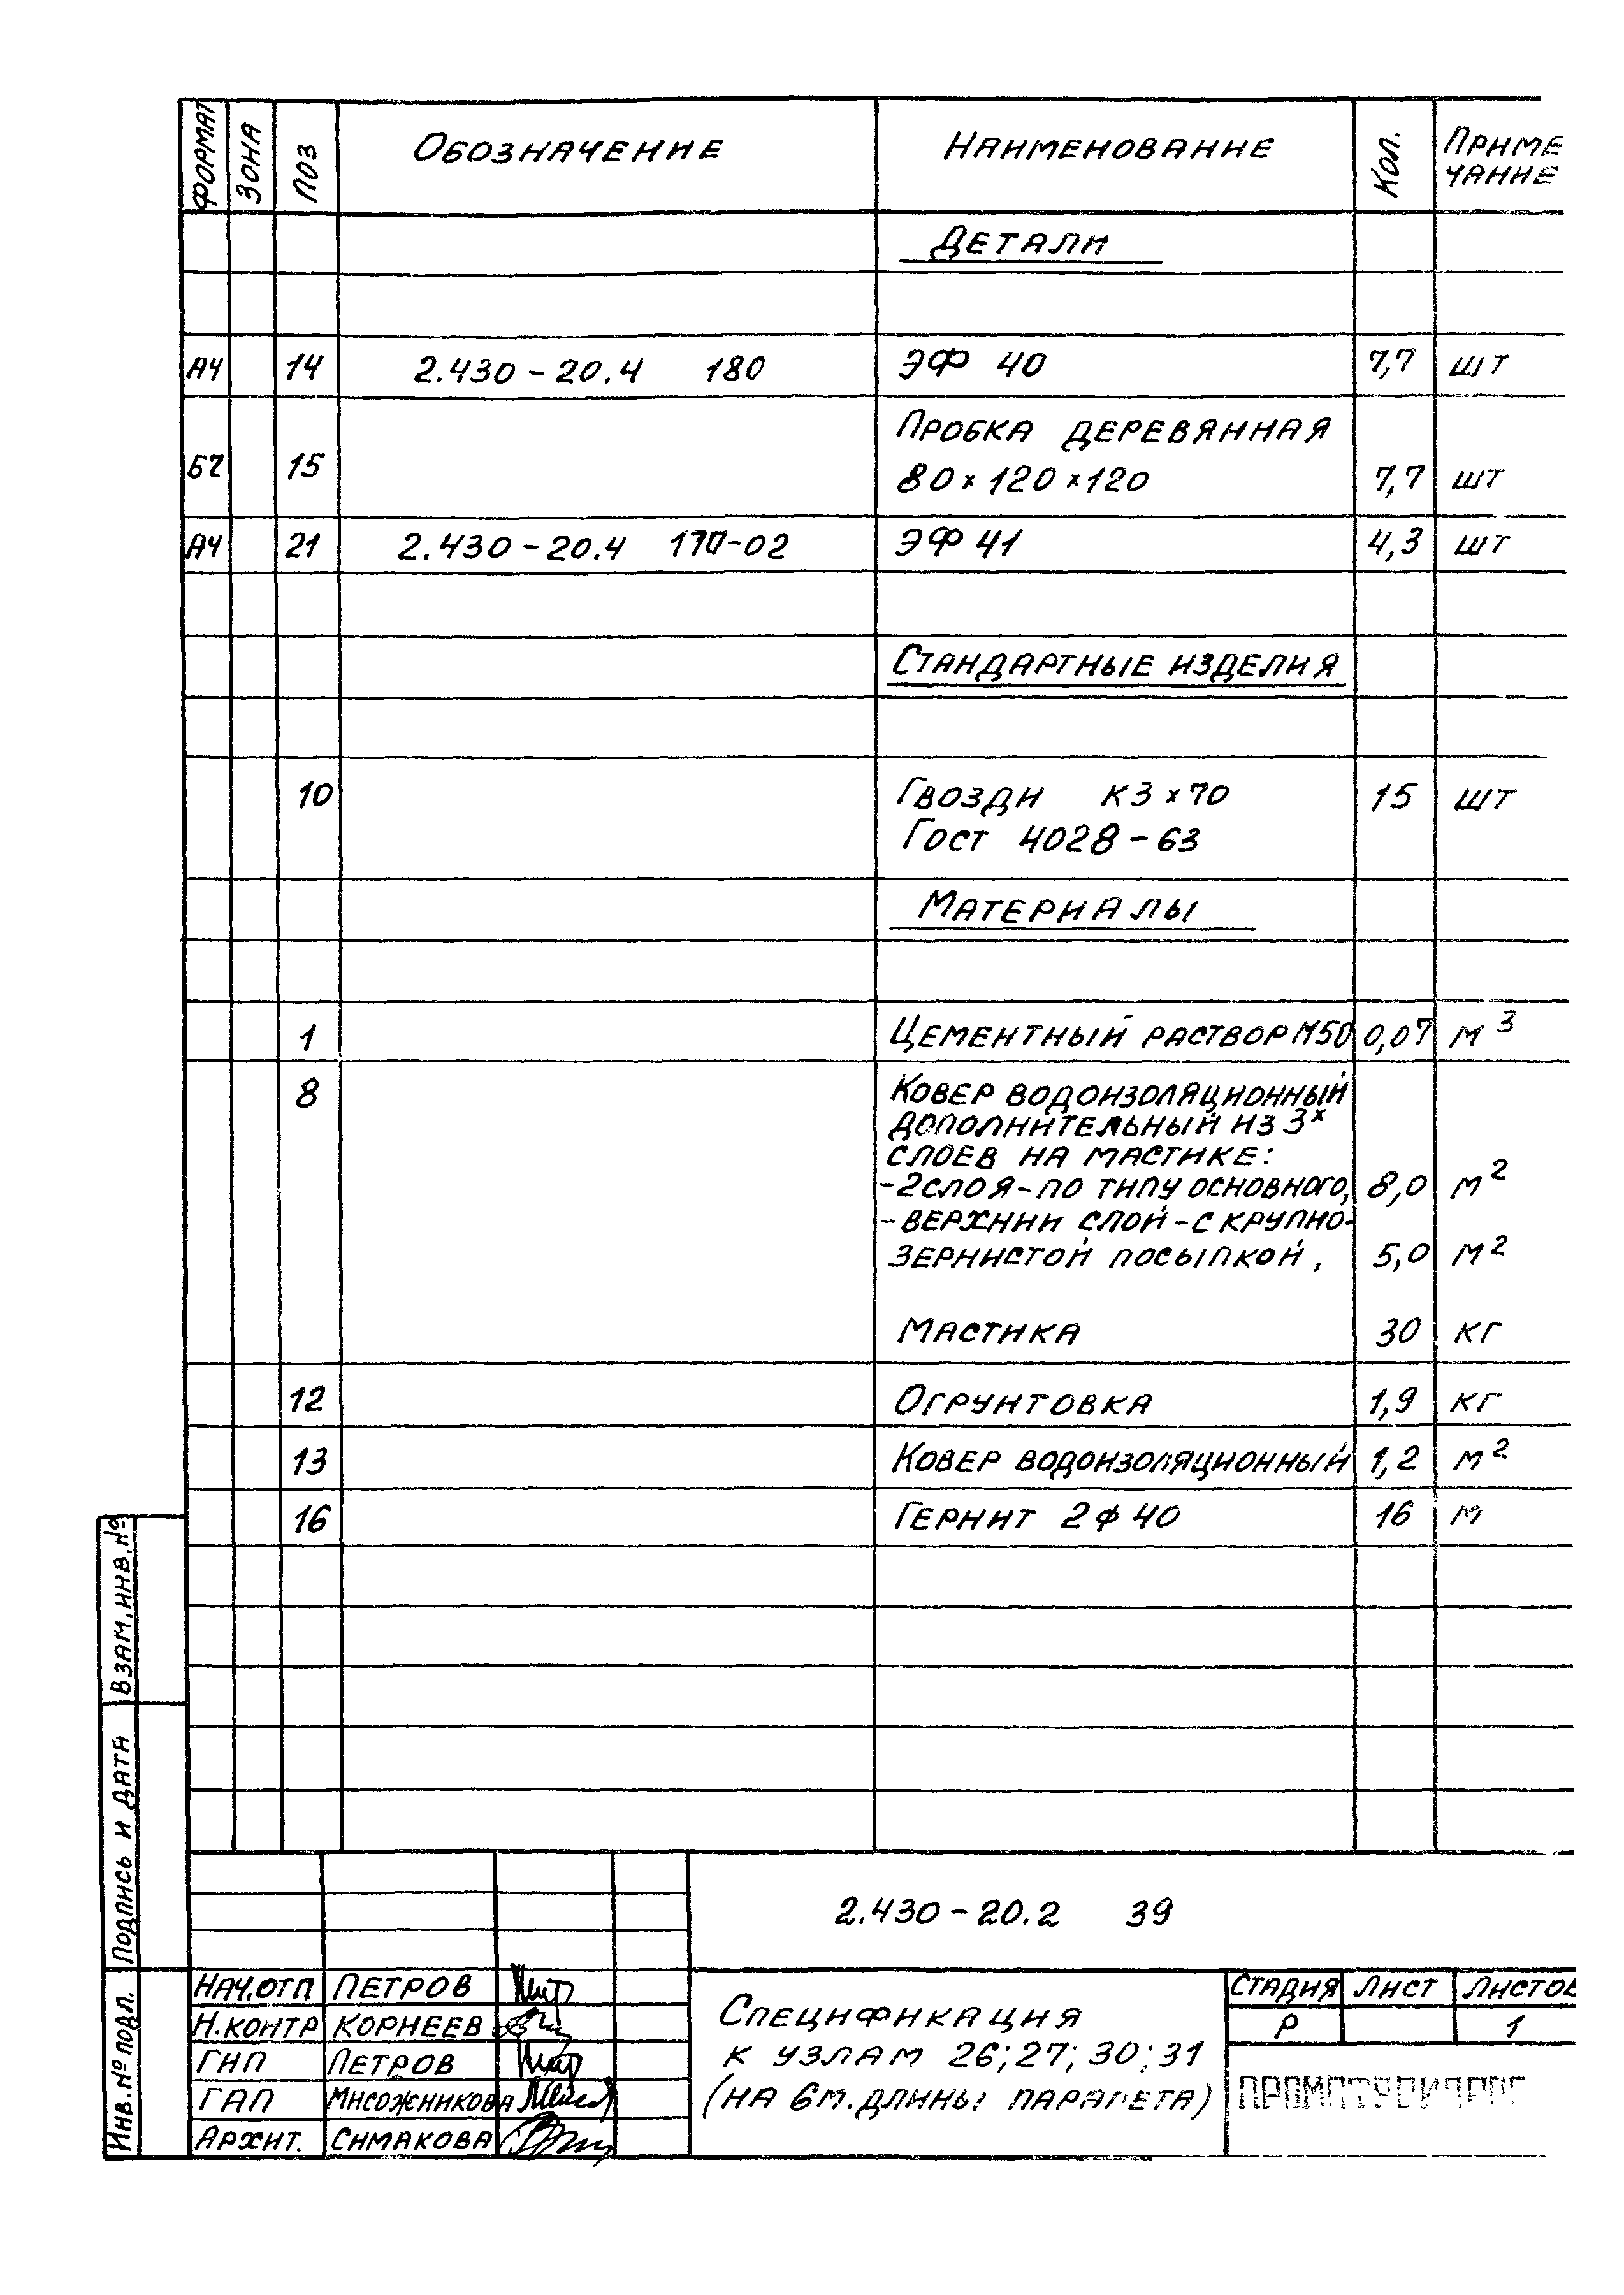 ФОРМАТ ЗОНА ПОЗ ОБОЗНАЧЕНИЕ НАИМЕНОВАНИЕ КОЛ. ПРИМЕ
ЧАНИЕ
ДЕТАЛИ
А4 14 2.430-20.4 180 ЭФ 40 7,7 ШТ
ПРОБКА ДЕРЕВЯННАЯ
БЧ 15 80×120×120 7,7 ШТ
А4 21 2.430-20.4 170-02 ЭФ 41 4,3 ШТ
СТАНДАРТНЫЕ ИЗДЕЛИЯ
10 ГВОЗДИ К3×70 15 ШТ
ГОСТ 4028-63
МАТЕРИАЛЫ
1 ЦЕМЕНТНЫЙ РАСТВОР М50 0,07 М³
8 КОВЕР ВОДОИЗОЛЯЦИОННЫЙ
ДОПОЛНИТЕЛЬНЫЙ ИЗ 3х
СЛОЕВ НА МАСТИКЕ:
-2 СЛОЯ-ПО ТИПУ ОСНОВНОГО, 8,0 М²
-ВЕРХНИЙ СЛОЙ-С КРУПНО-
ЗЕРНИСТОЙ ПОСЫПКОЙ, 5,0 М²
МАСТИКА 30 КГ
12 ОГРУНТОВКА 1,9 КГ
13 КОВЕР ВОДОИЗОЛЯЦИОННЫЙ 1,2 М²
16 ГЕРНИТ 2ф40 16 М
ВЗАМ.ИНВ.№
ПОДПИСЬ И ДАТА
ИНВ.№ ПОДЛ.
2.430-20.2 39
НАЧ.ОТП ПЕТРОВ
Н.КОНТР КОРНЕЕВ
ГИП ПЕТРОВ
ГАП МИСОЖНИКОВА
АРХИТ. СИМАКОВА
СПЕЦИФИКАЦИЯ
К УЗЛАМ 26; 27; 30; 31
(НА 6М. ДЛИНЫ ПАРАПЕТА)
СТАДИЯ ЛИСТ ЛИСТОВ
Р 1